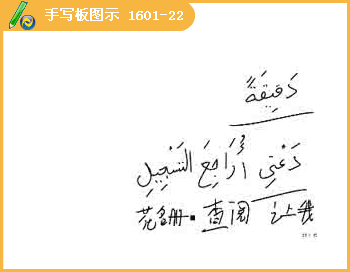 手写板图示 1601-22
دَقِيقَةً
دَعْنِي أُرَاجِعَ التَسْجِيلِ
花名册. 查阅 让我